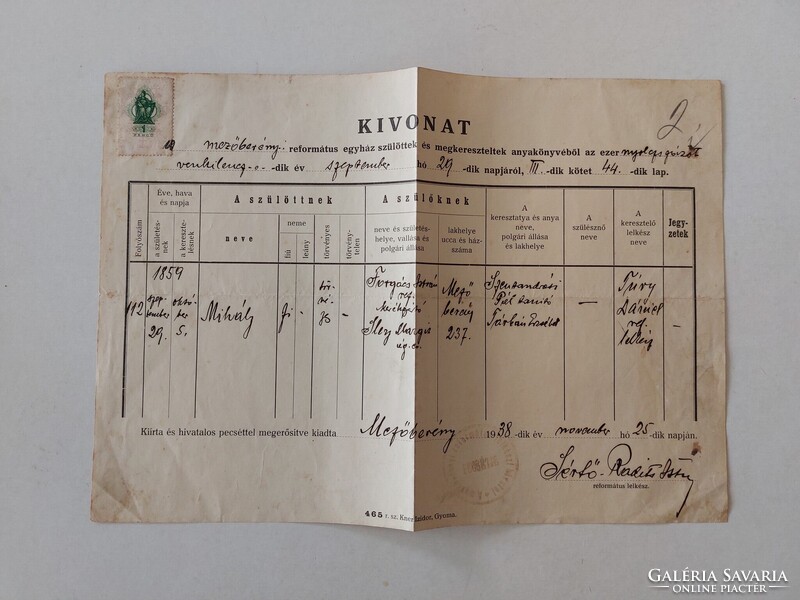 1
KIVONAT
2
a mezőberényi református egyház szülöttek és megkereszteltek anyakönyvéből az ezer nyolcszázöt
venkilencz-e-dik év szeptember hó 29-dik napjáról, III-dik kötet 44-dik lap.
Folyószám
Éve, hava és napja
a születés-nek
a keresztelés-nek
A szülöttnek
neve
neme
fiú
leány
törvényes
törvény-telen
A szülőknek
neve és születés-helye, vallása és polgári állása
lakhelye ucca és ház-száma
A keresztatya és anya neve, polgári állása és lakhelye
A szülésznő neve
A keresztelő lelkész neve
Jegy-zetek
1859
112
szep-tember 29.
októ-ber 5.
Mihály
fi
-
tör-vé-nyes
-
Forgács István ref.
Mező berény 237.
Szentandrási Pál tanító
—
Túry Dániel ref. lelkész
-
Kiírta és hivatalos pecséttel megerősítve kiadta Mezőberény 1938-dik év november hó 25-dik napján.
református lelkész.
465 r. sz. Kner Izidor, Gyoma.
GALÉRIA SAVARIA
ONLINE PIACTÉR